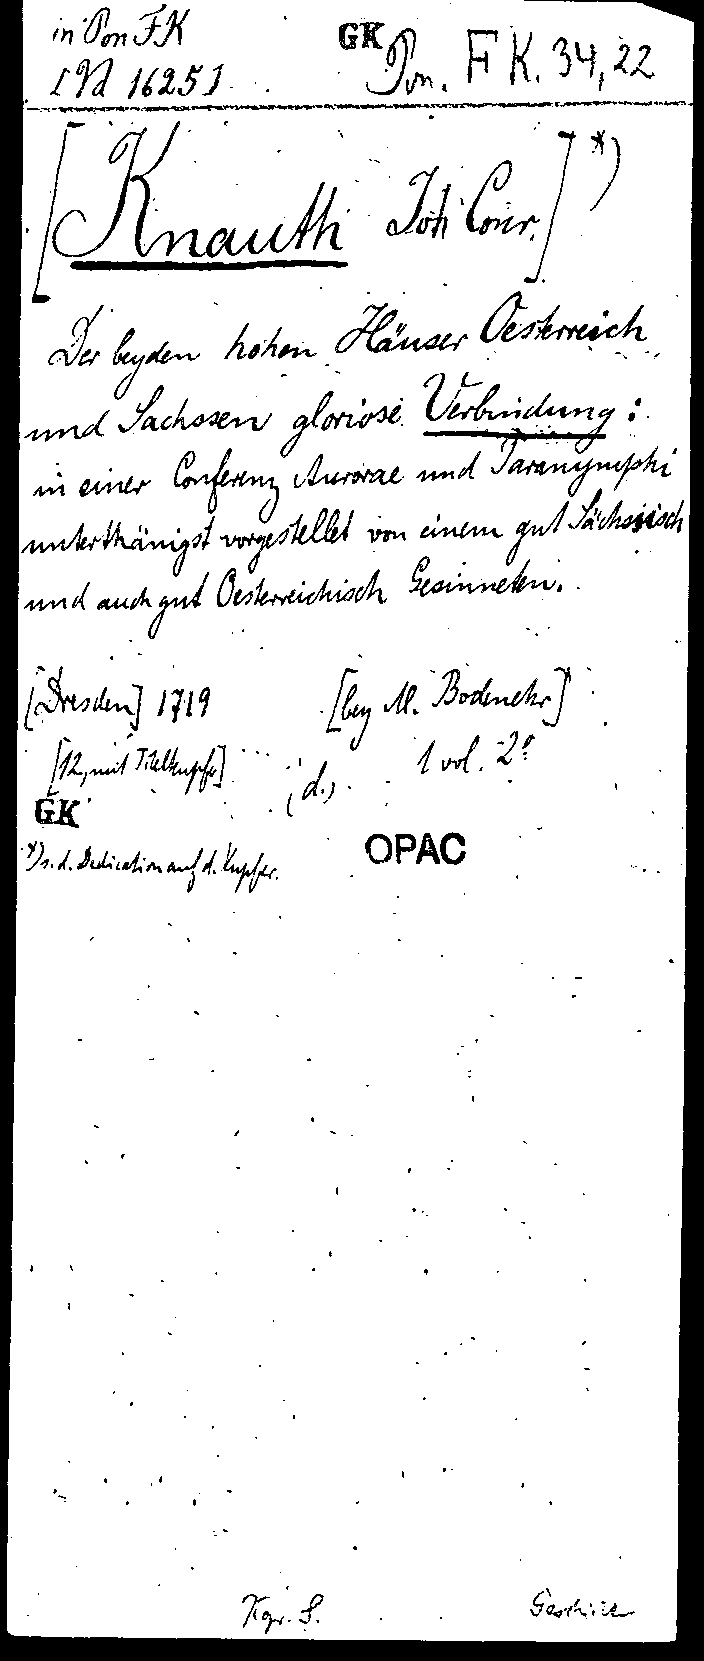 in Pon FK
GK Pon. FK. 34,22
[Knauth Joh Conr.] *)
Der beyden hohen Häuser Oesterreich
und Sachssen gloriose Verbindung:
in einer Conferenz Aurorae und Paranymphi
unterthänigst vorgestellet von einem gut Sächsisch
und auch gut Oesterreichisch Gesinneten.
[Dresden] 1719 [bey M. Bodenehr]
[12, mit Titelkupfer] (d.) 1 vol. 2°
GK
*) s. d. Dedication auf d. Kupfer.
OPAC
Kgr. S.